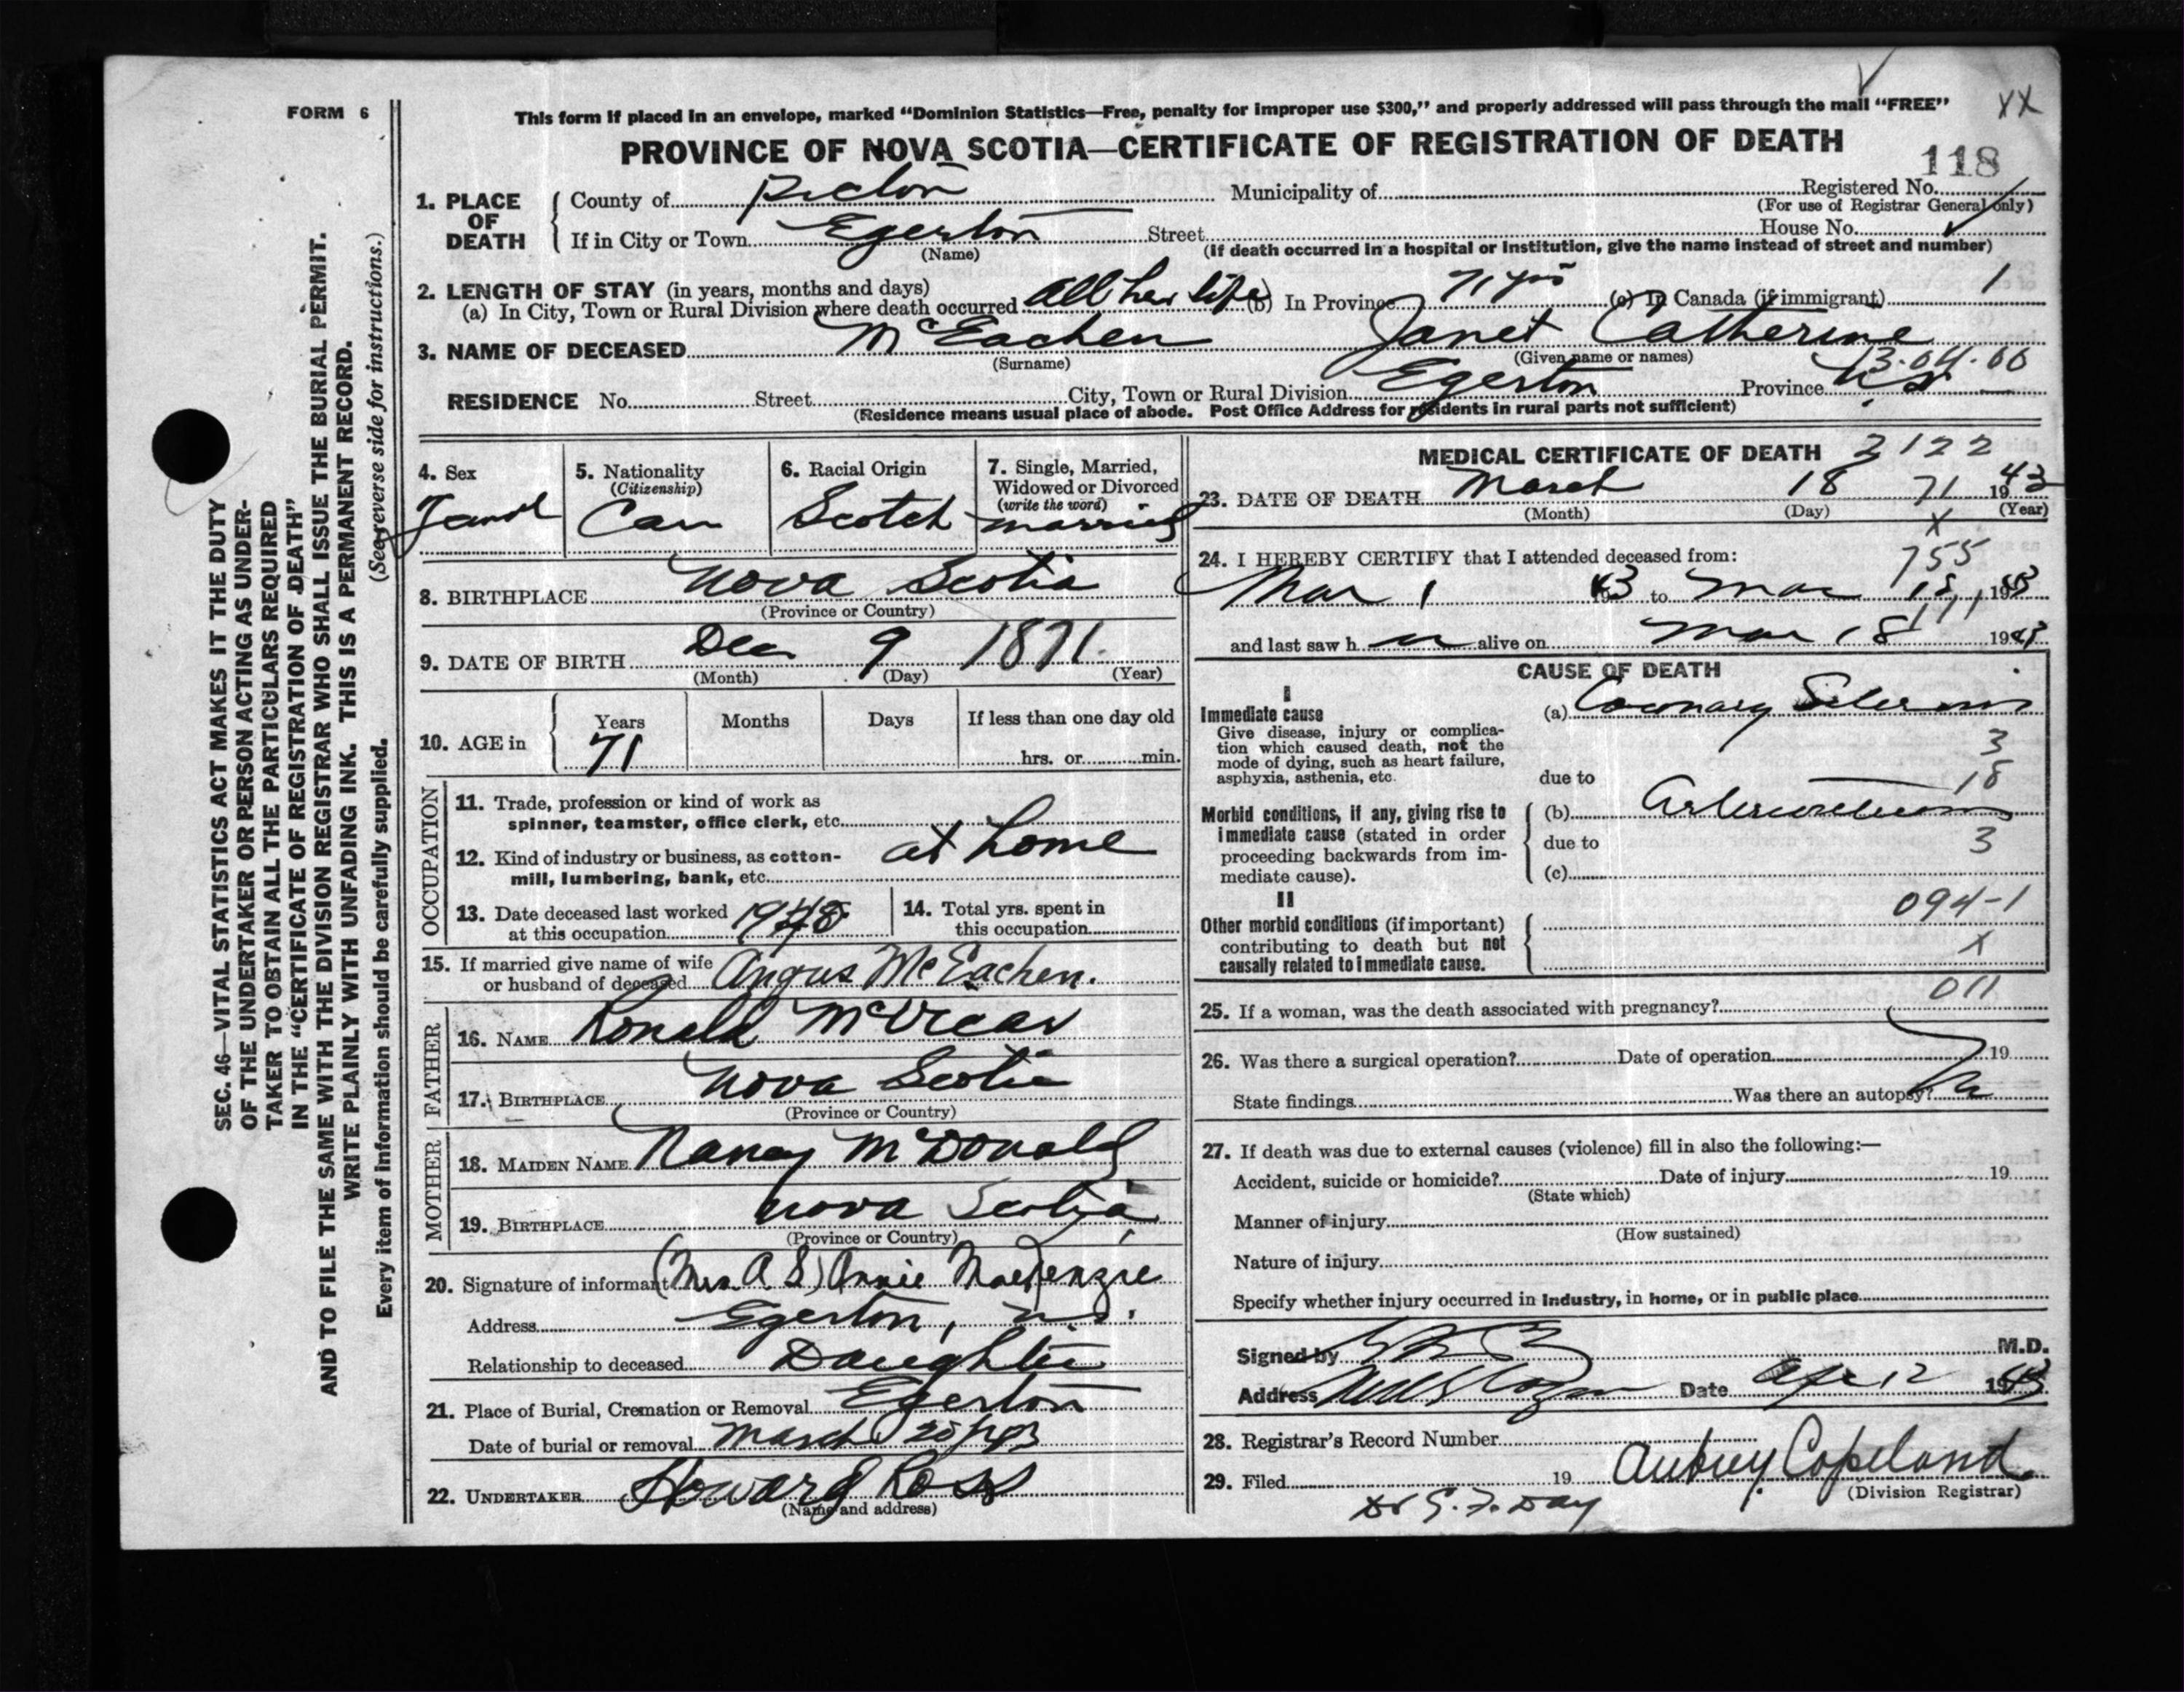 FORM 6
This form if placed in an envelope, marked “Dominion Statistics—Free, penalty for improper use $300,” and properly addressed will pass through the mail “FREE”
XX
PROVINCE OF NOVA SCOTIA—CERTIFICATE OF REGISTRATION OF DEATH
118
1. PLACE OF DEATH
County of Pictou Municipality of Registered No.
(For use of Registrar General only)
If in City or Town Egerton Street House No.
(Name) (If death occurred in a hospital or institution, give the name instead of street and number)
2. LENGTH OF STAY (in years, months and days)
(a) In City, Town or Rural Division where death occurred All her life (b) In Province 71 yrs (c) In Canada (if immigrant) 1
3. NAME OF DECEASED McEachen Janet Catherine
(Surname) (Given name or names)
13.04.00
RESIDENCE No. Street City, Town or Rural Division Egerton Province N.S.
(Residence means usual place of abode. Post Office Address for residents in rural parts not sufficient)
4. Sex
5. Nationality (Citizenship) Can
6. Racial Origin Scotch
7. Single, Married, Widowed or Divorced (write the word) married
8. BIRTHPLACE Nova Scotia
(Province or Country)
9. DATE OF BIRTH Dec 9 1871.
(Month) (Day) (Year)
10. AGE in Years Months Days If less than one day old
71 hrs. or min.
OCCUPATION
11. Trade, profession or kind of work as spinner, teamster, office clerk, etc.
at home
12. Kind of industry or business, as cotton-mill, lumbering, bank, etc.
13. Date deceased last worked at this occupation
14. Total yrs. spent in this occupation
15. If married give name of wife or husband of deceased Angus McEachen.
FATHER
16. NAME Ronald McVicar
17. BIRTHPLACE Nova Scotia
(Province or Country)
MOTHER
18. MAIDEN NAME Nancy McDonald
19. BIRTHPLACE Nova Scotia
(Province or Country)
20. Signature of informant (Mrs A S) Annie MacKenzie
Address Egerton, N.S.
Relationship to deceased Daughter
21. Place of Burial, Cremation or Removal Egerton
Date of burial or removal March 20/43
22. UNDERTAKER Howard Ross
(Name and address)
MEDICAL CERTIFICATE OF DEATH 2122
23. DATE OF DEATH March 18 71 1943
(Month) (Day) (Year)
X
24. I HEREBY CERTIFY that I attended deceased from: 755
Mar 1 43 to Mar 18, 1943
111
and last saw h er alive on Mar 18 1943
CAUSE OF DEATH
I
Immediate cause
Give disease, injury or complication which caused death, not the mode of dying, such as heart failure, asphyxia, asthenia, etc.
(a) Coronary Sclerosis
3
due to 18
Morbid conditions, if any, giving rise to immediate cause (stated in order proceeding backwards from immediate cause).
(b)
due to 3
(c)
II
Other morbid conditions (if important) contributing to death but not causally related to immediate cause.
094-1
X
011
25. If a woman, was the death associated with pregnancy?
26. Was there a surgical operation? Date of operation 19
State findings Was there an autopsy?
27. If death was due to external causes (violence) fill in also the following:—
Accident, suicide or homicide? Date of injury 19
(State which)
Manner of injury
(How sustained)
Nature of injury
Specify whether injury occurred in industry, in home, or in public place
Signed by M.D.
Address Date Apr 12 1943
28. Registrar's Record Number
29. Filed 19 Aubrey Copeland
(Division Registrar)
Dr G. F. Day
SEC. 46—VITAL STATISTICS ACT MAKES IT THE DUTY
OF THE UNDERTAKER OR PERSON ACTING AS UNDER-
TAKER TO OBTAIN ALL THE PARTICULARS REQUIRED
IN THE “CERTIFICATE OF REGISTRATION OF DEATH”
AND TO FILE THE SAME WITH THE DIVISION REGISTRAR WHO SHALL ISSUE THE BURIAL PERMIT.
WRITE PLAINLY WITH UNFADING INK. THIS IS A PERMANENT RECORD.
(See reverse side for instructions.)
Every item of information should be carefully supplied.